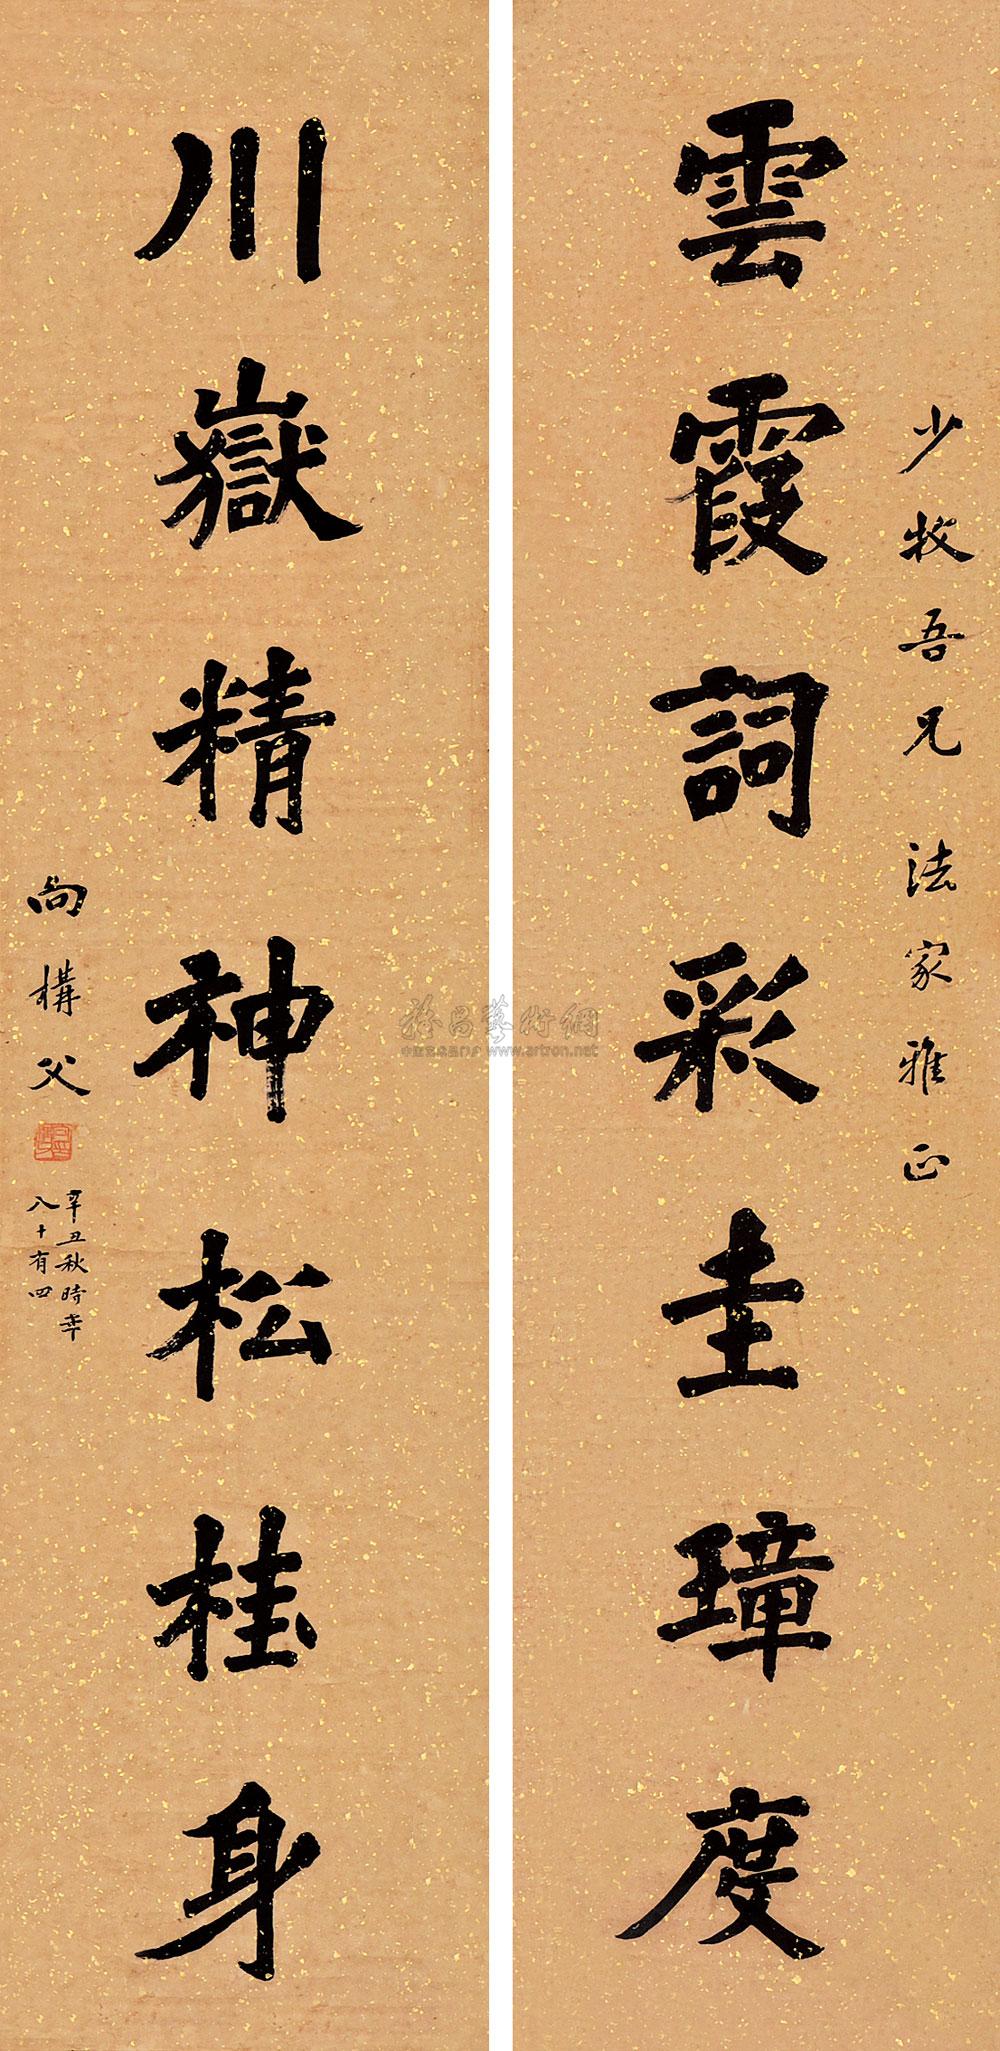 少牧吾兄法家雅正
雲霞詞彩圭璋度
川嶽精神松桂身
向構父
辛丑秋時年
八十有四
雅昌藝術網
中国艺术品门户 www.artron.net